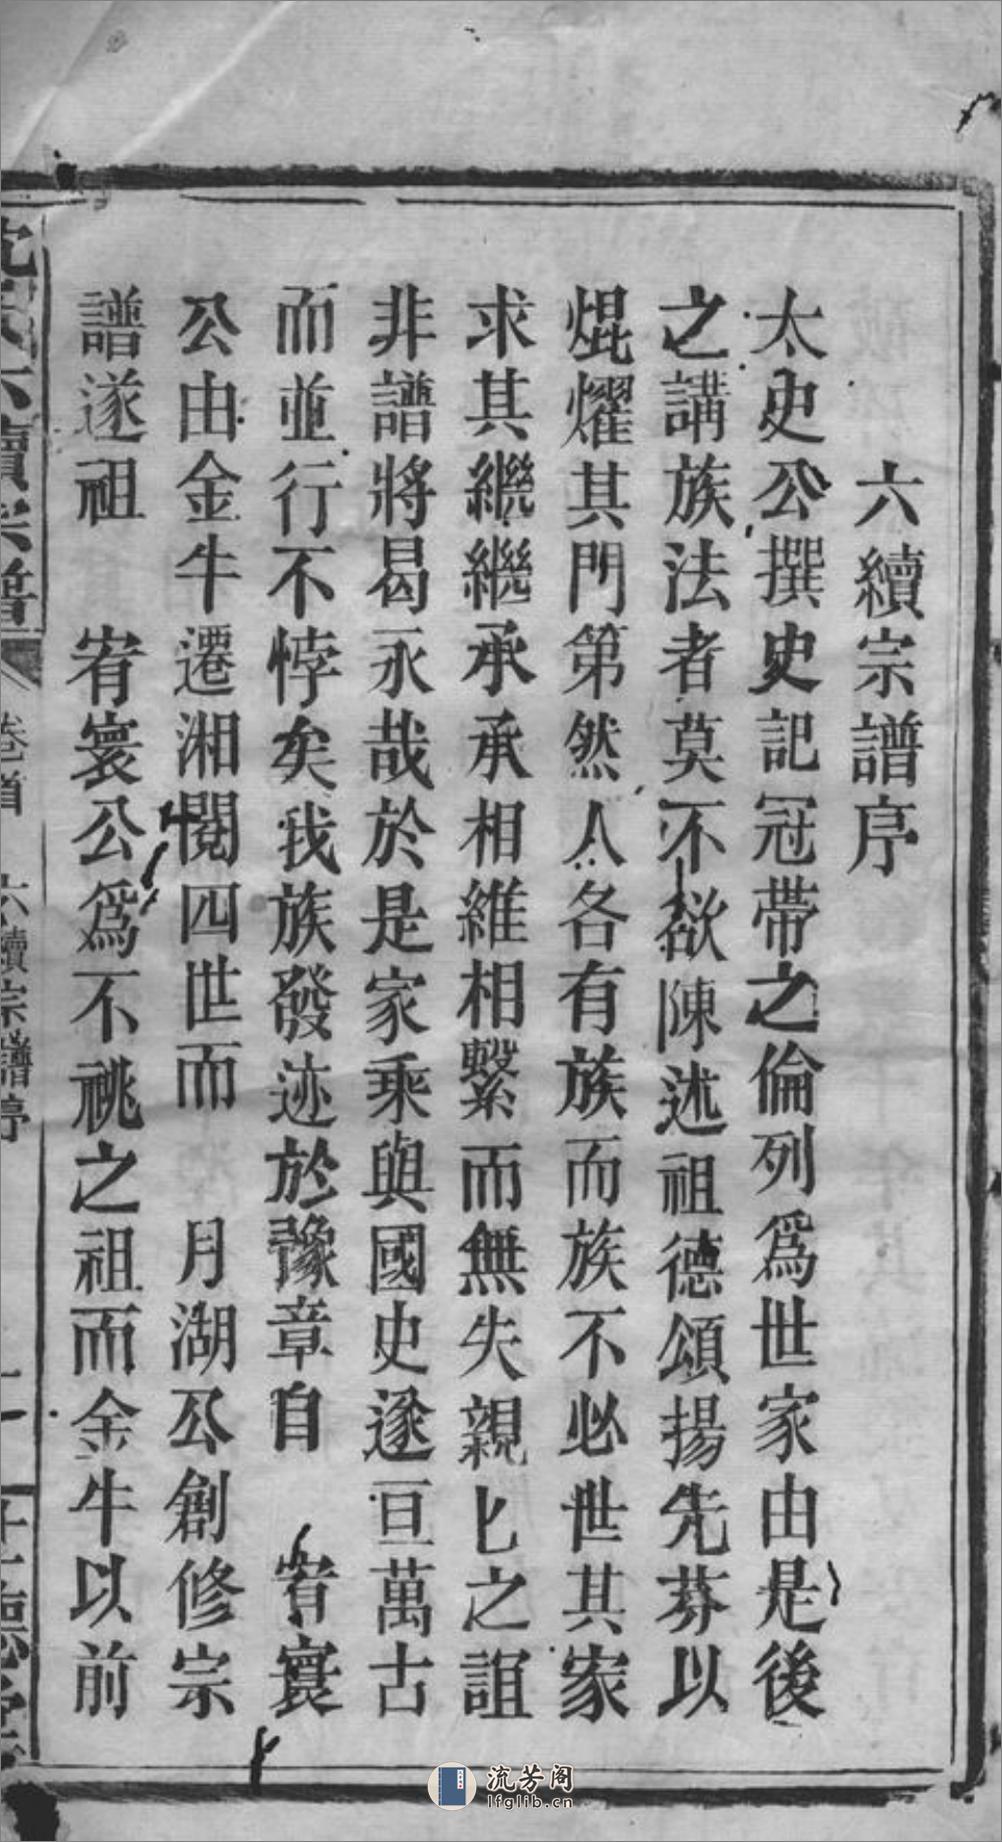 六續宗譜序
太史公撰史記冠帶之倫列爲世家由是後
之講族法者莫不欲陳述祖德頌揚先芬以
焜燿其門第然人各有族而族不必世其家
求其繼繼承承相維相繫而無失親匕之誼
非譜將曷永哉於是家乘與國史遂亘萬古
而並行不悖矣我族發迹於豫章自 宥寰
公由金牛遷湘閱四世而 月湖公創修宗
譜遂祖 宥寰公爲不祧之祖而金牛以前
沈氏六續宗譜 卷首 六續宗譜序
流芳阁
lfglib.cn